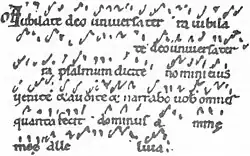 Iubilate deo universa ter ra iubila
te deo universa ter
ra psalmum dicite nomini eius
venite & audite & narrabo vobis omnes
quanta fecit dominus
mee alle luia